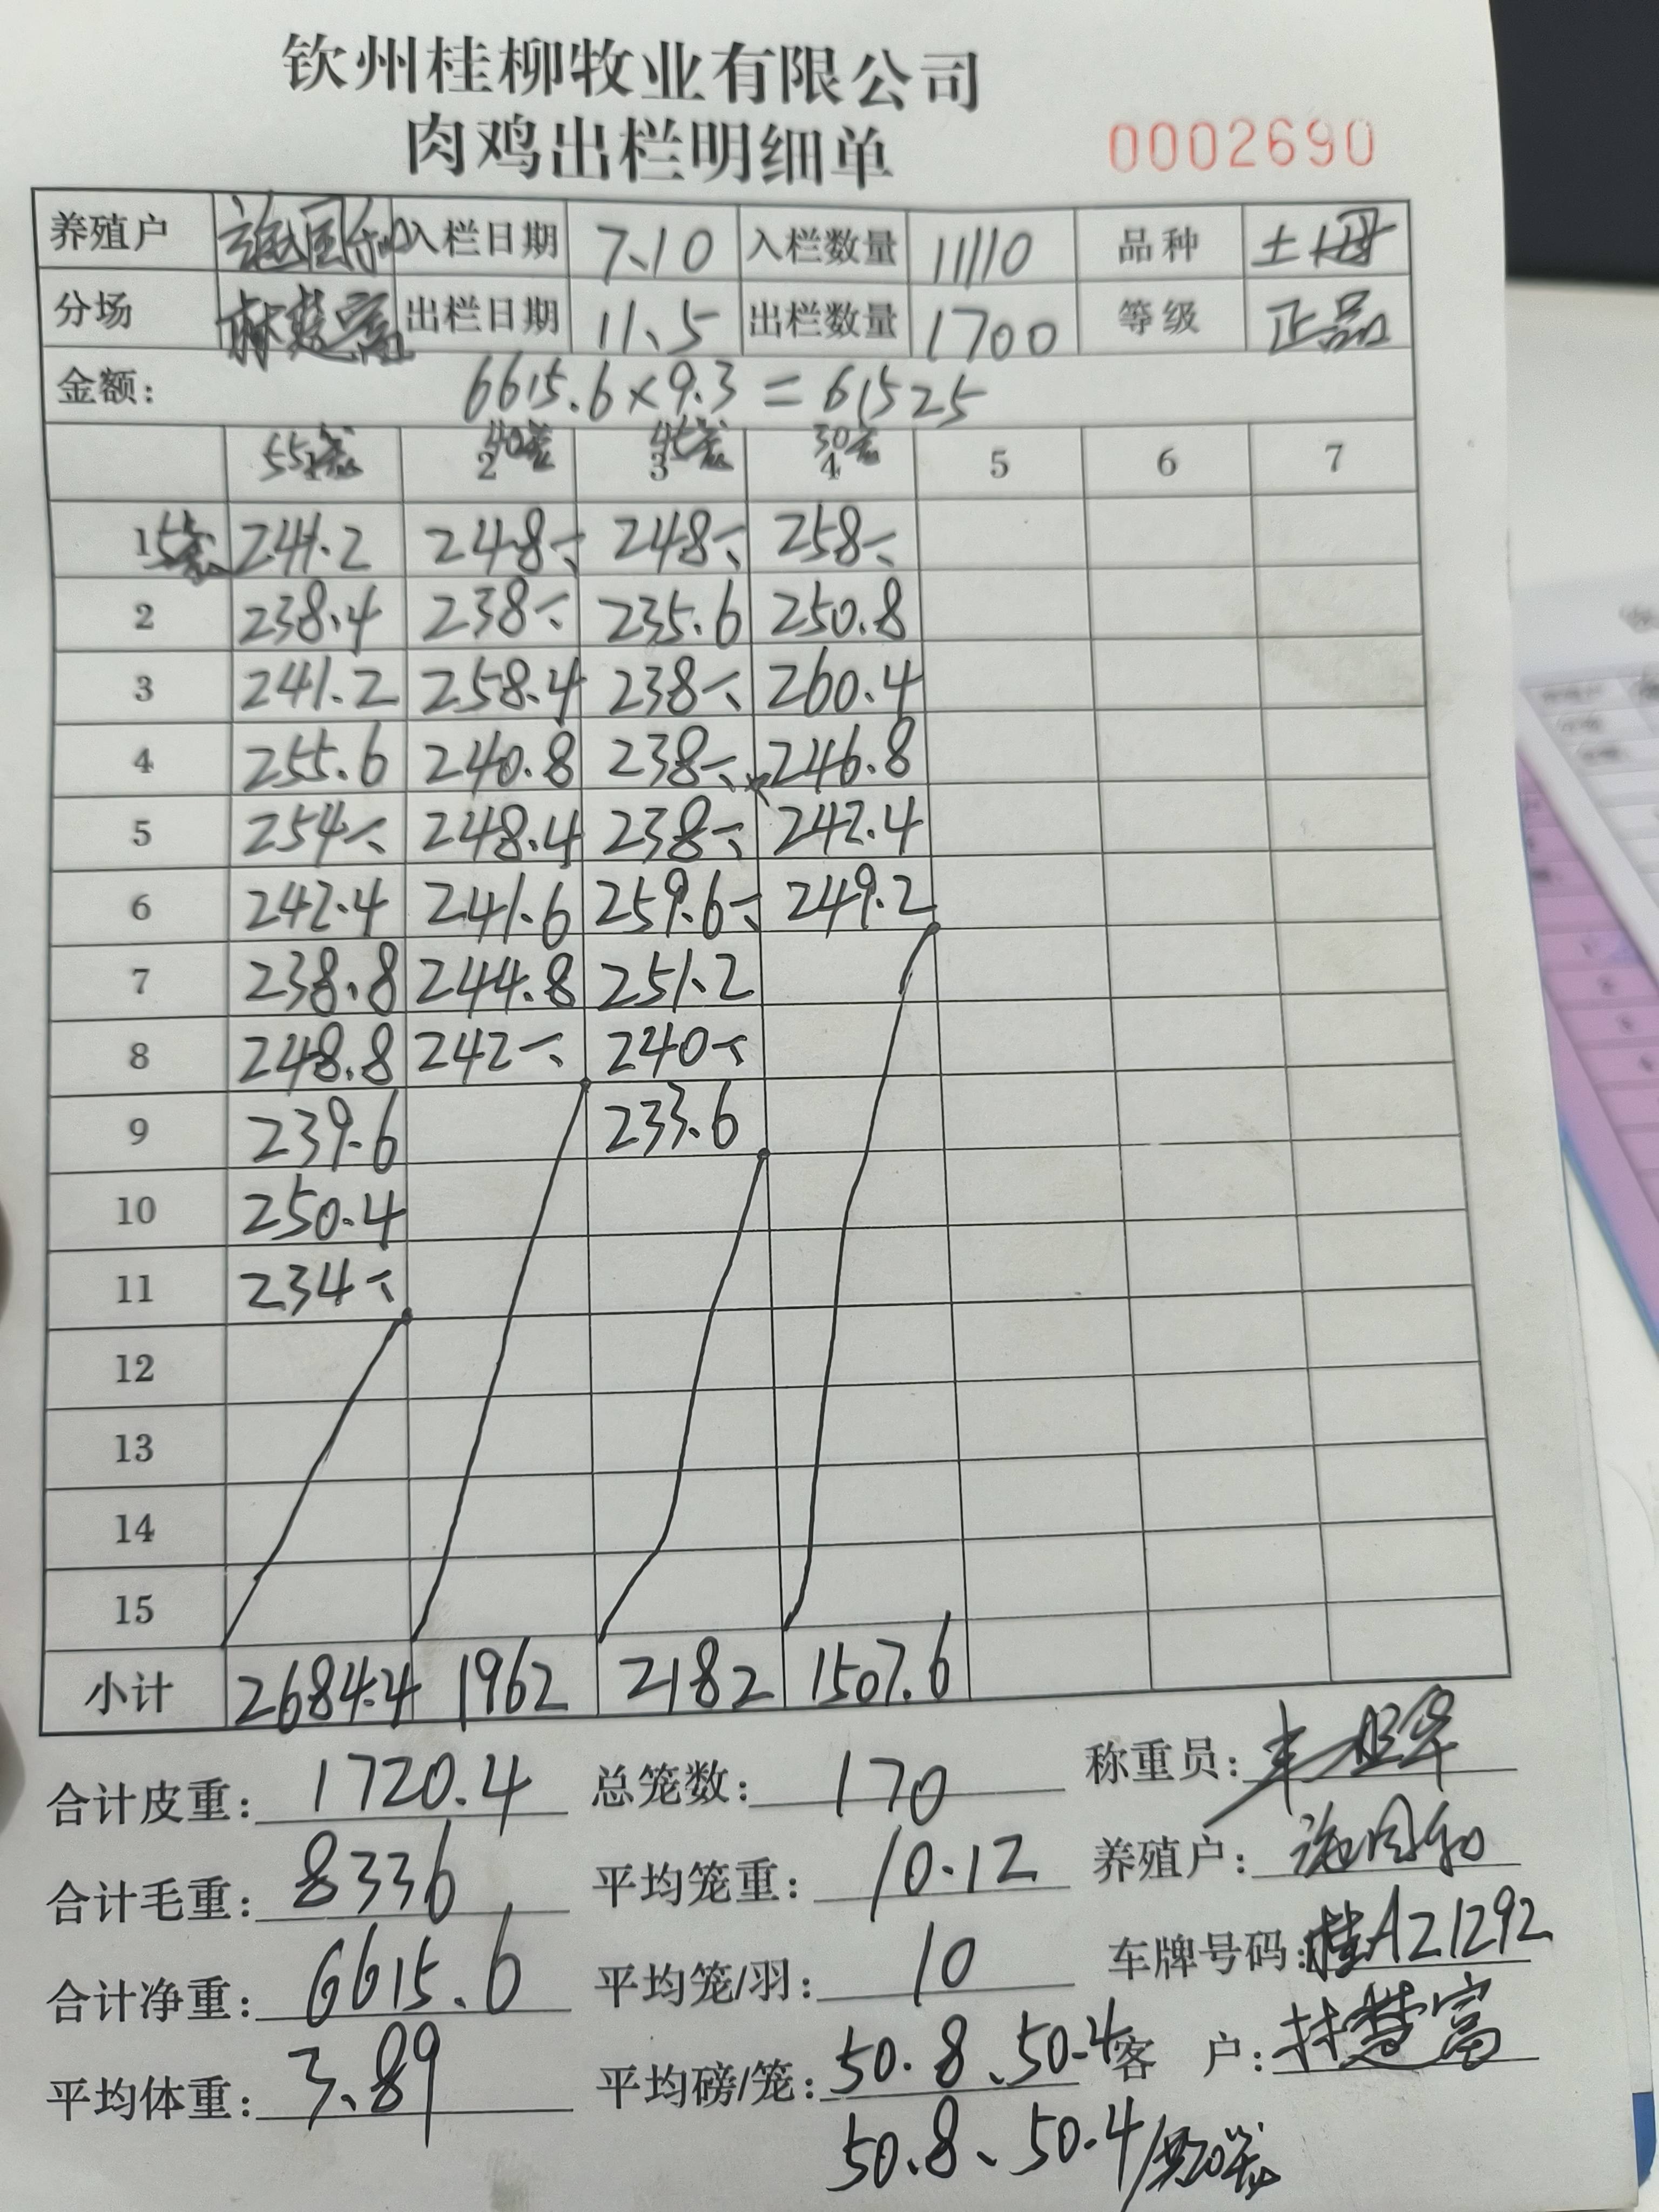 钦州桂柳牧业有限公司
肉鸡出栏明细单 0002690
养殖户 施国和 入栏日期 7.10 入栏数量 11110 品种 土母
分场 林楚富 出栏日期 11.5 出栏数量 1700 等级 正品
金额: 6615.6×9.3=61525
55笼 1 40笼 2 45笼 3 30笼 4 5 6 7
1 5笼 241.2 248 248 258
2 238.4 238 235.6 250.8
3 241.2 258.4 238 260.4
4 255.6 240.8 238 246.8
5 254 248.4 238 242.4
6 242.4 241.6 259.6 249.2
7 238.8 244.8 251.2
8 248.8 242 240
9 239.6 233.6
10 250.4
11 234
12
13
14
15
小计 2684.4 1962 2182 1507.6
合计皮重: 1720.4 总笼数: 170 称重员:
合计毛重: 8336 平均笼重: 10.12 养殖户: 施国和
合计净重: 6615.6 平均笼/羽: 10 车牌号码: 桂A21292
平均体重: 3.89 平均磅/笼: 50.8、50.4 客户: 林楚富
50.8、50.4/共20笼